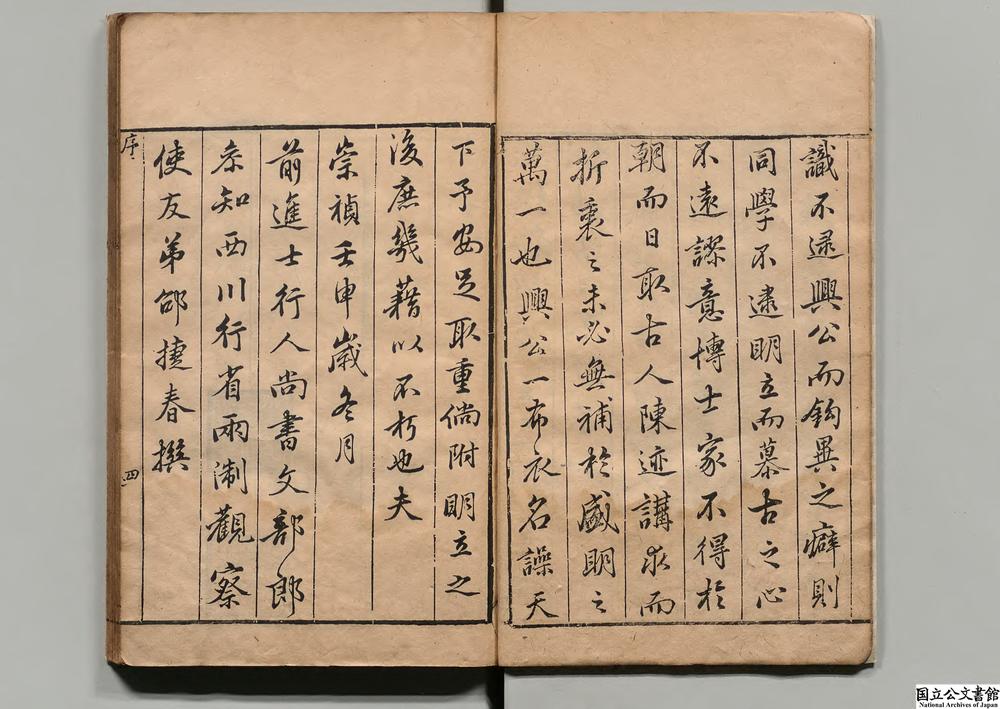 識不逮興公而鈎異之癖則
同學不逮明立而慕古之心
不遠謬意博士家不得於
朝而日取古人陳迹講求而
折衷之未必無補於盛明之
萬一也興公一布衣名譟天
下予安足取重倘附明立之
後庶幾藉以不朽也夫
崇禎壬申歲冬月
前進士行人尚書文部郎
叅知西川行省兩淛觀察
使友弟邵捷春撰
序
四
国立公文書館
National Archives of Japan